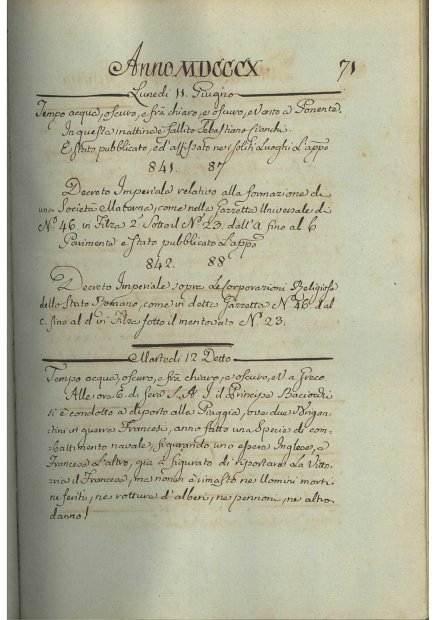 Anno MDCCCX. 71
Lunedì 11. Giugno
Tempo acqua, oscuro, e frà chiaro, e oscuro, e Vento a Ponente.
In questa mattina è fallito Sebastiano Bianchi.
E stato pubblicato, ed' affissato ne i soliti Luoghi L'appo
841. 87
Decreto Imperiale relativo alla formazione di
una Società Materna, come nella Gazzetta Universale di
N.º 46 in Filza 2.ª Sotto il N.º 23. dall' a fino al b
Parimente e stato pubblicato L'appo
842. 88
Decreto Imperiale sopra Le Corporazioni Religiose
dello Stato Romano, come in detta Gazzetta N.º 46. dal
c. fino al d in Filza sotto il mentovato N.º 23.
Martedì 12 Detto
Tempo acqua, oscuro, e frà chiaro, e oscuro, e V. a Greco.
Alle ore 6. di sera S. A. I. il Principe Baciocchi
si è condotto a diporto alla Piaggia, ove due Brigan-
tini in guerra Francesi, anno fatto una Specie di com-
battimento navale, figurando uno essere Inglese, e
Francese L'altro, già è figurato di riportare La Vitto-
ria il Francese, ma non vi è rimasto ne Uomini morti
ne feriti, ne rottura d'alberi, ne pennoni, ne altro
danno!